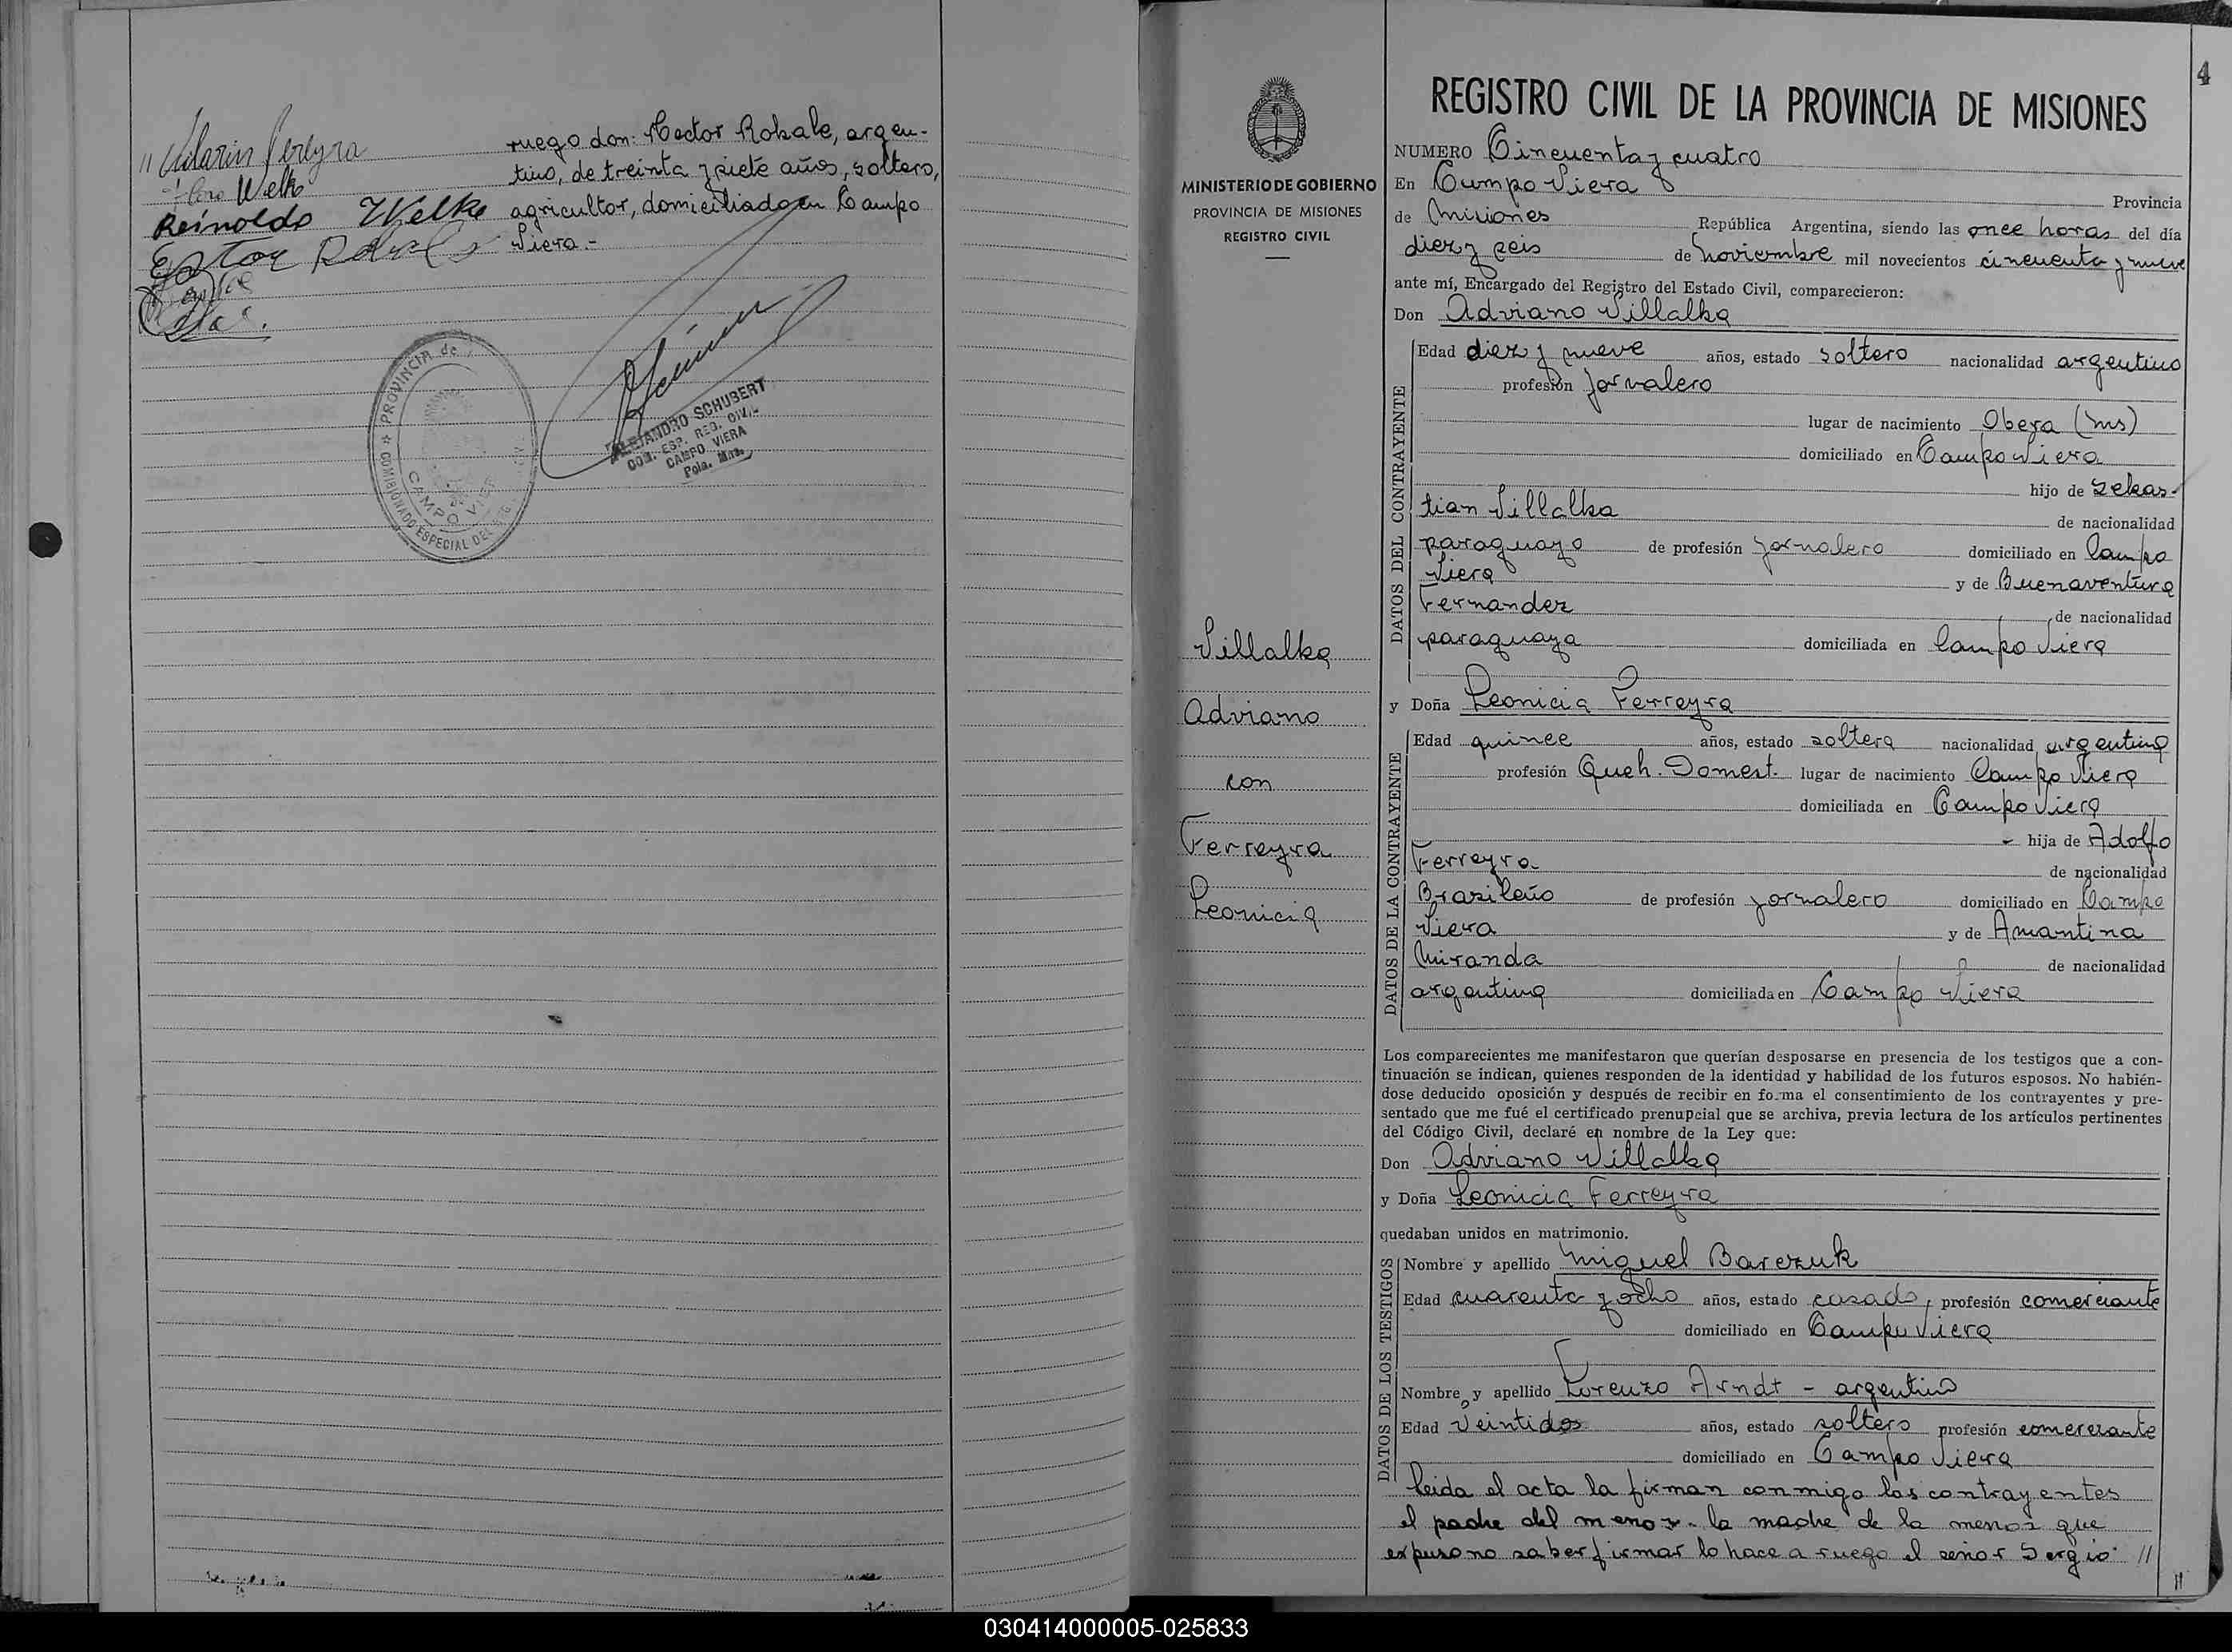 // Hilarin Pereyra
Welke
Reinoldo Welke
ruego don: Hector Robale, argen-
tino, de treinta y siete años, soltero,
agricultor, domiciliado en Campo
Viera.-
PROVINCIA de
COMISIONADO ESPECIAL DEL REG.
CAMPO VIERA
ALEJANDRO SCHUBERT
COM. ESP. REG. CIVIL
CAMPO VIERA
Pcia. Mns.
4
MINISTERIO DE GOBIERNO
PROVINCIA DE MISIONES
REGISTRO CIVIL
Villalba
Adriano
con
Ferreyra
Leonicia
REGISTRO CIVIL DE LA PROVINCIA DE MISIONES
NUMERO Cincuenta y cuatro
En Campo Viera Provincia
de Misiones República Argentina, siendo las once horas del día
diez y seis de Noviembre mil novecientos cincuenta y nueve
ante mí, Encargado del Registro del Estado Civil, comparecieron:
Don Adriano Villalba
DATOS DEL CONTRAYENTE
Edad diez y nueve años, estado soltero nacionalidad argentino
profesión Jornalero
lugar de nacimiento Obera (Ms)
domiciliado en Campo Viera
hijo de Sebas-
tian Villalba de nacionalidad
paraguayo de profesión Jornalero domiciliado en Campo
Viera y de Buenaventura
Fernandez de nacionalidad
paraguaya domiciliada en Campo Viera
y Doña Leonicia Ferreyra
DATOS DE LA CONTRAYENTE
Edad quince años, estado soltera nacionalidad argentina
profesión Queh. Domest. lugar de nacimiento Campo Viera
domiciliada en Campo Viera
hija de Adolfo
Ferreyra de nacionalidad
Brasileño de profesión jornalero domiciliado en Campo
Viera y de Amantina
Miranda de nacionalidad
argentina domiciliada en Campo Viera
Los comparecientes me manifestaron que querían desposarse en presencia de los testigos que a con-
tinuación se indican, quienes responden de la identidad y habilidad de los futuros esposos. No habién-
dose deducido oposición y después de recibir en forma el consentimiento de los contrayentes y pre-
sentado que me fué el certificado prenupcial que se archiva, previa lectura de los artículos pertinentes
del Código Civil, declaré en nombre de la Ley que:
Don Adriano Villalba
y Doña Leonicia Ferreyra
quedaban unidos en matrimonio.
DATOS DE LOS TESTIGOS
Nombre y apellido Miguel Barczuk
Edad cuarenta y ocho años, estado casado, profesión comerciante
domiciliado en Campo Viera
Nombre y apellido Lorenzo Arndt - argentino
Edad Veintidos años, estado soltero profesión comerciante
domiciliado en Campo Viera
leida el acta la firman conmigo los contrayentes
el padre del menor - la madre de la menor que
expuso no saber firmar lo hace a ruego el señor Sergio //
030414000005-025833